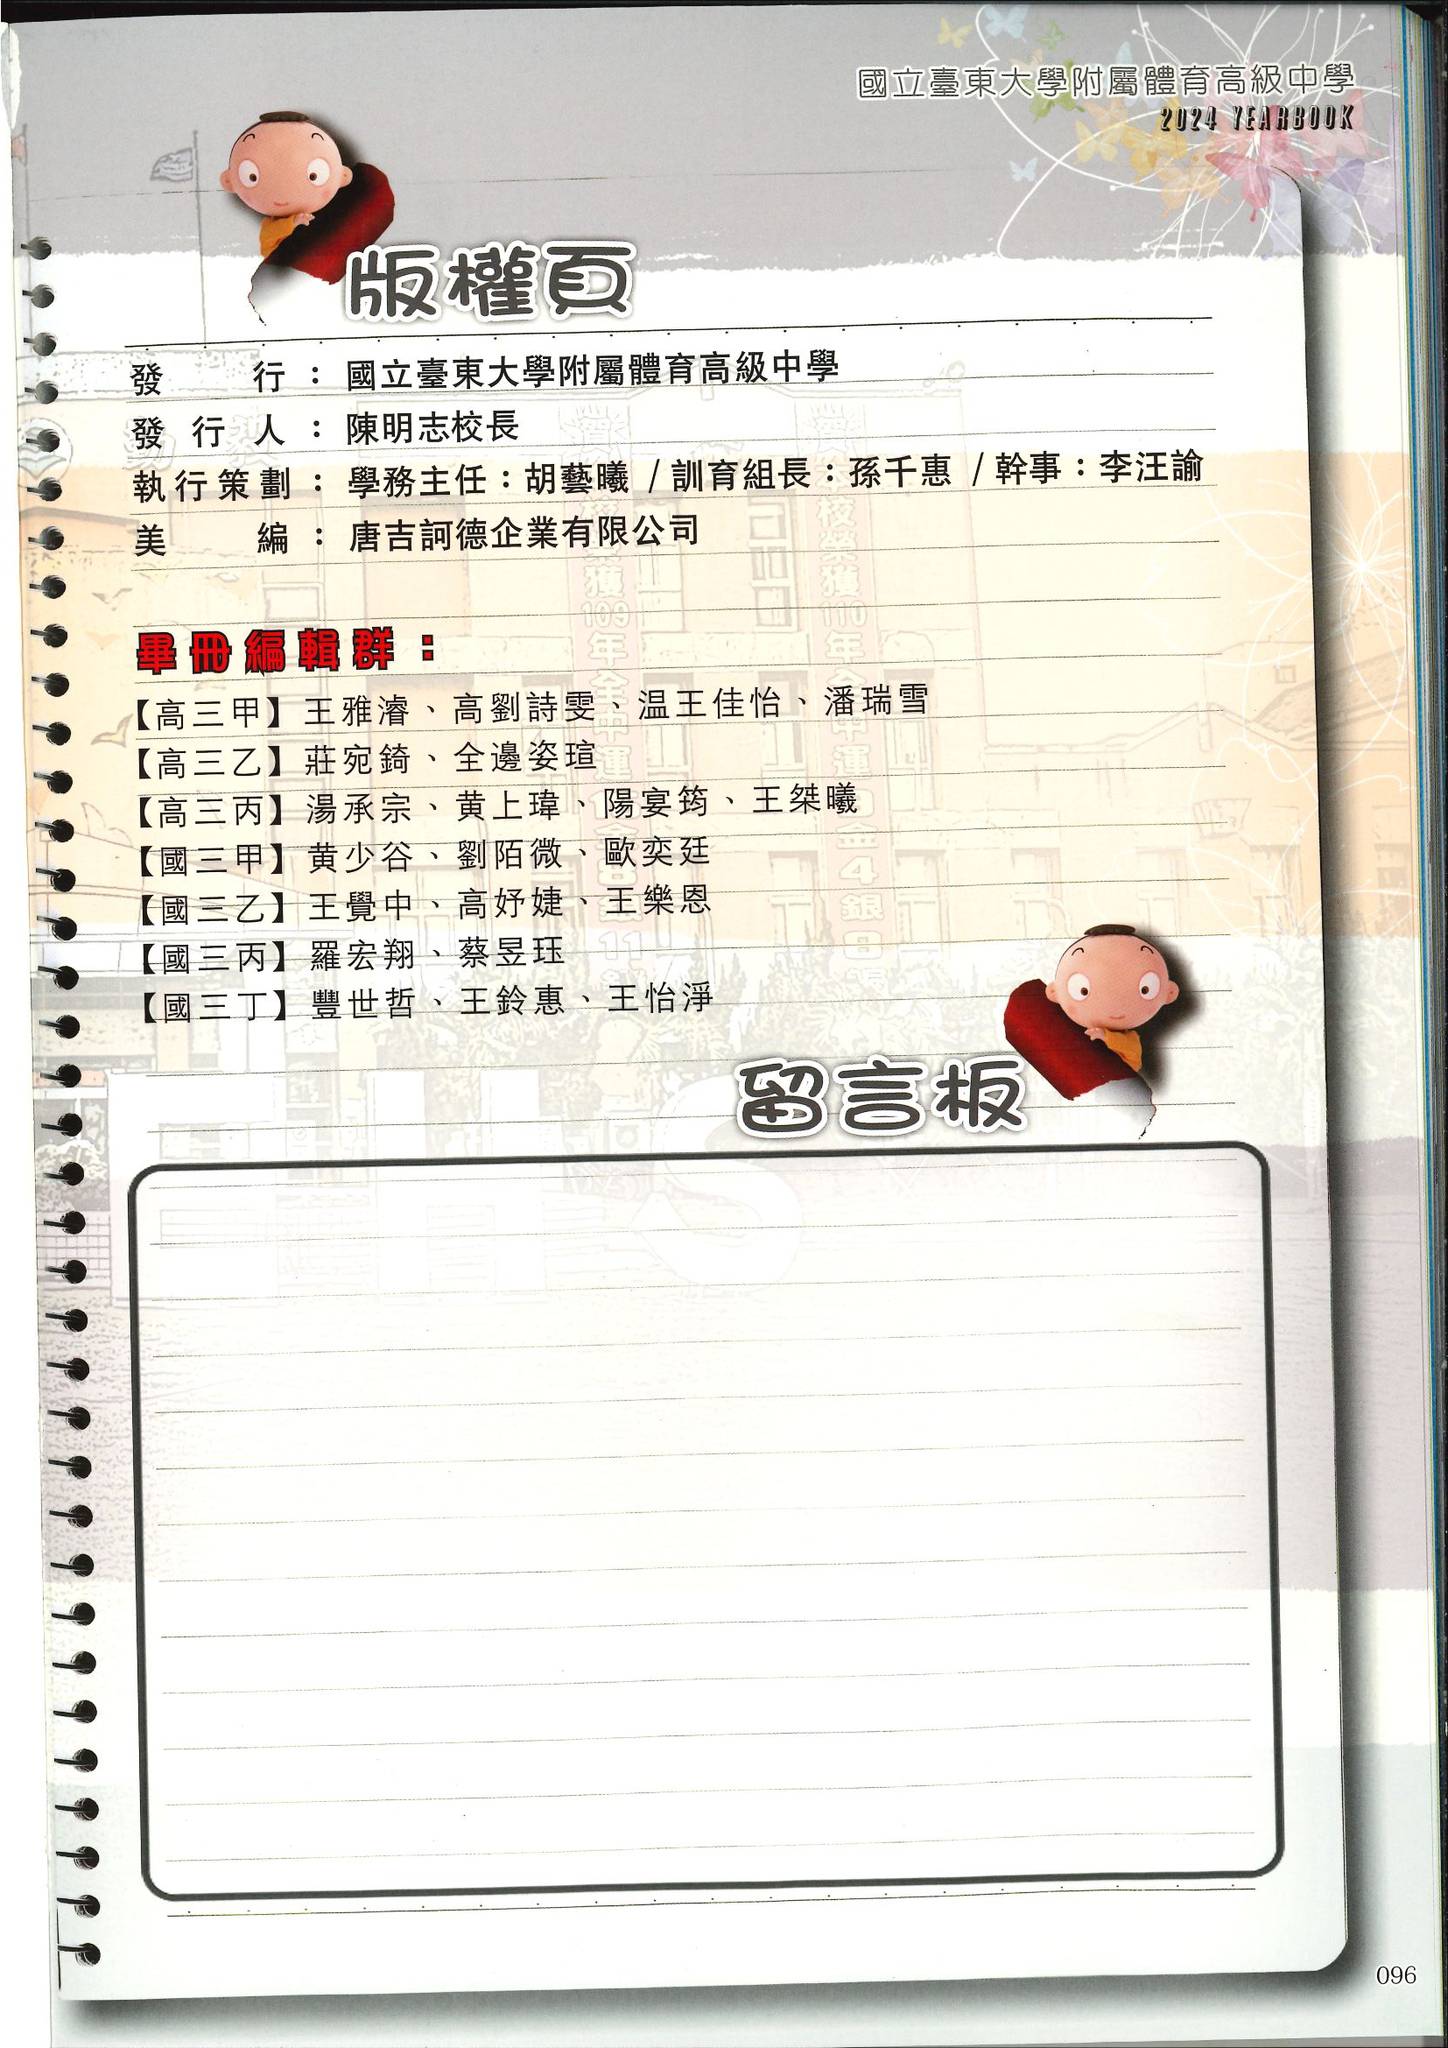 國立臺東大學附屬體育高級中學
2024 YEARBOOK
版權頁
發行：國立臺東大學附屬體育高級中學
發行人：陳明志校長
執行策劃：學務主任：胡藝曦 / 訓育組長：孫千惠 / 幹事：李汪諭
美編：唐吉訶德企業有限公司
畢冊編輯群：
【高三甲】王雅濬、高劉詩雯、温王佳怡、潘瑞雪
【高三乙】莊宛錡、全邊姿瑄
【高三丙】湯承宗、黄上瑋、陽宴筠、王桀曦
【國三甲】黄少谷、劉陌微、歐奕廷
【國三乙】王覺中、高妤婕、王樂恩
【國三丙】羅宏翔、蔡昱珏
【國三丁】豐世哲、王鈴惠、王怡淨
留言板
096